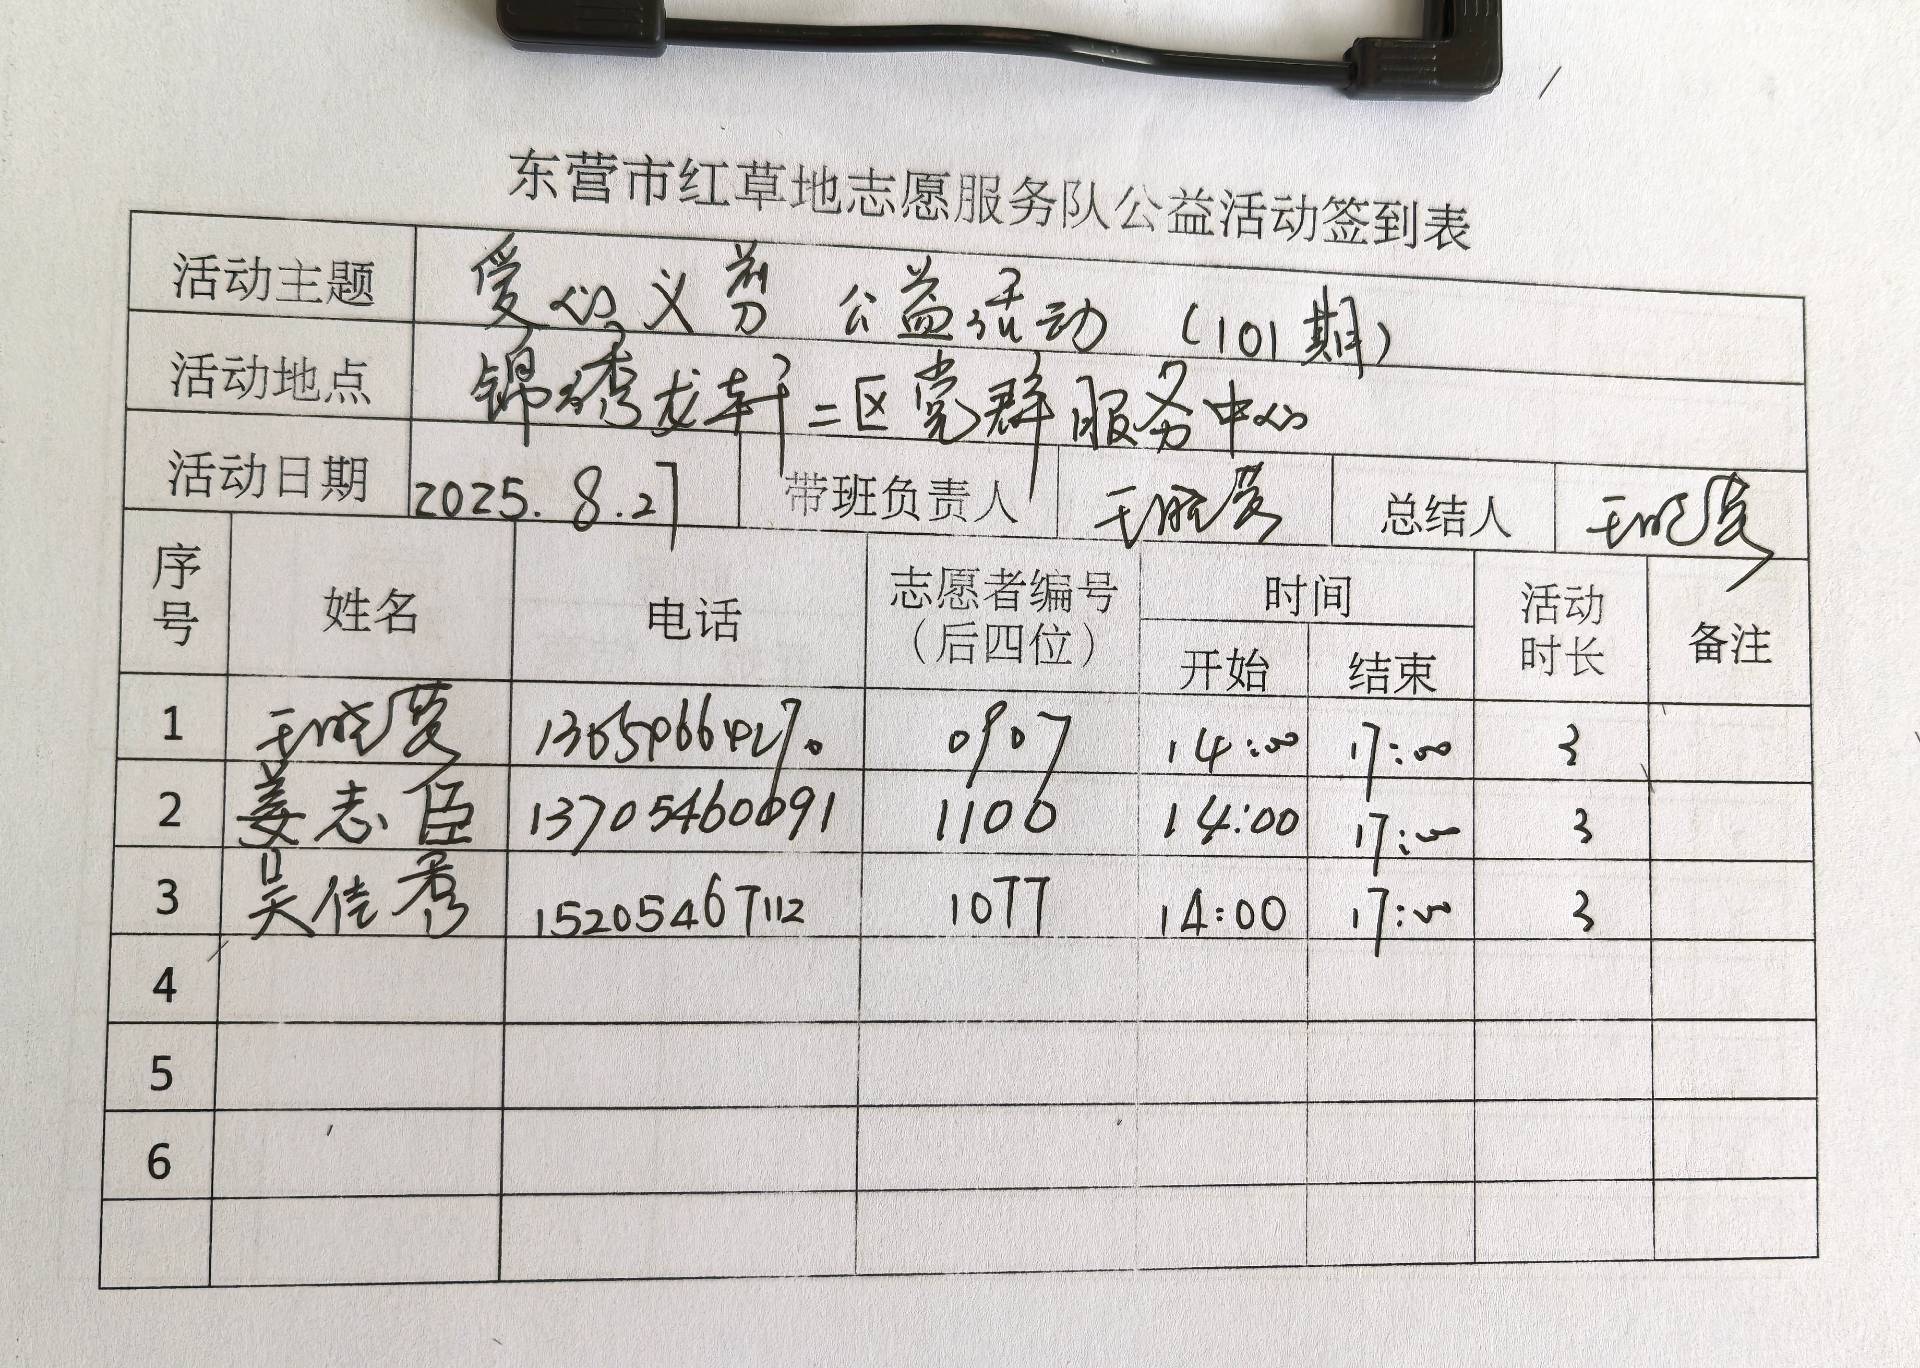 东营市红草地志愿服务队公益活动签到表
活动主题 爱心义剪 公益活动（101期）
活动地点 锦绣龙轩二区党群服务中心
活动日期 2025.8.27 带班负责人 王晓蕾 总结人 王晓蕾
序号 姓名 电话 志愿者编号（后四位） 时间 开始 结束 活动时长 备注
1 王晓蕾 0907 14:00 17:00 3
2 姜志臣 13705460691 1100 14:00 17:00 3
3 吴佳秀 15205467112 1077 14:00 17:00 3
4
5
6